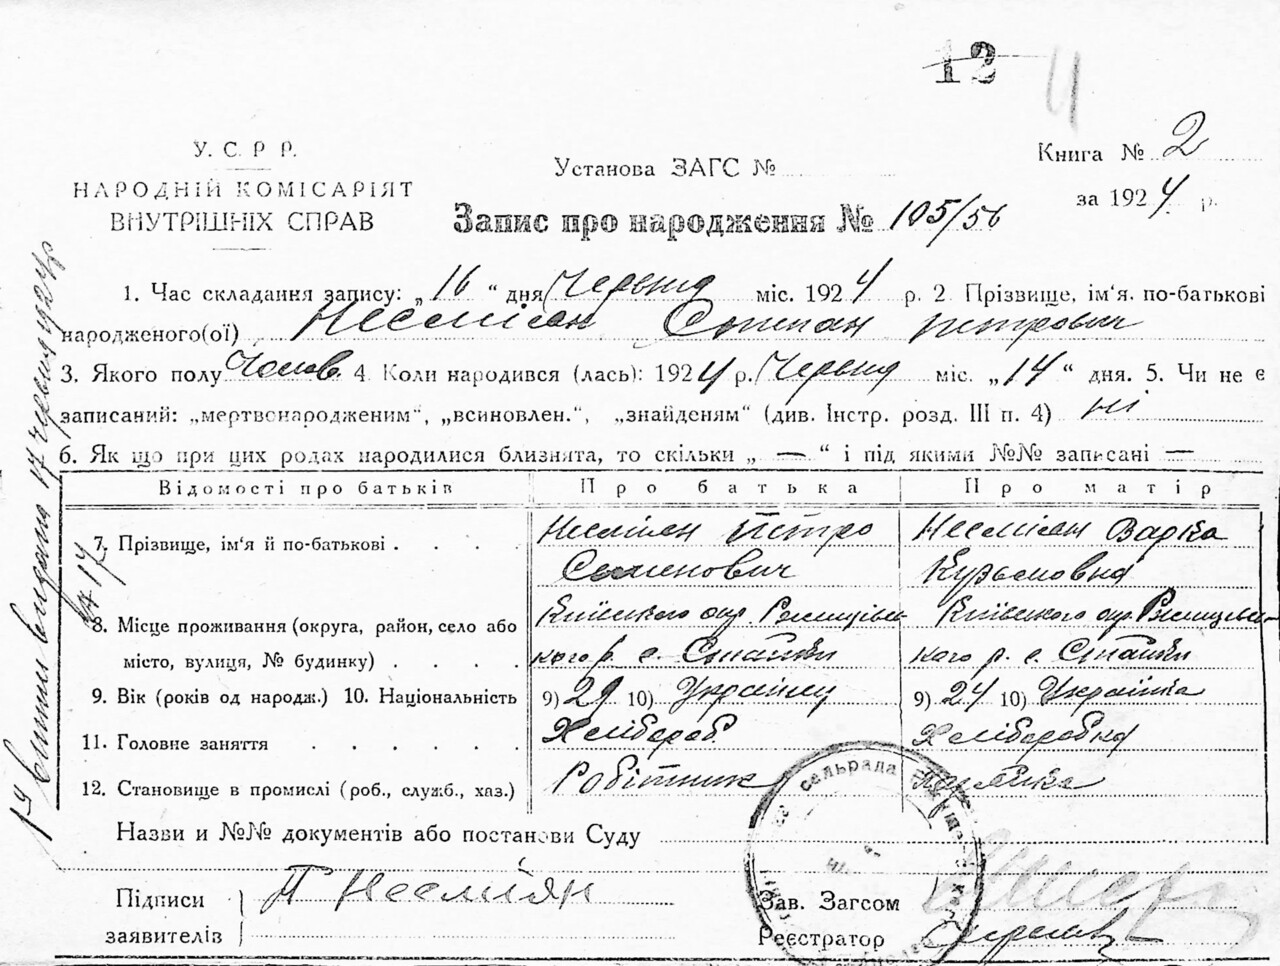 12 11
У. С. Р Р.
НАРОДНІЙ КОМІСАРІЯТ
ВНУТРІШНІХ СПРАВ
Установа ЗАГС №
Книга № 2
за 1924 р.
Запис про народження № 105/56
1. Час складання запису: „16“ дня Червня міс. 1924 р. 2. Прізвище, ім'я. по-батькові
народженого(ої) Несміян Степан Петрович
3. Якого полу Чолов. 4. Коли народився (лась): 1924 р. Червня міс. „14“ дня. 5. Чи не є
записаний: „мертвонародженим“, „всиновлен.“, „знайденям“ (див. Інстр. розд. III п. 4) ні
6. Як що при цих родах народилися близнята, то скільки „—“ і під якими №№ записані —
Відомості про батьків Про батька Про матір
7. Прізвище, ім'я й по-батькові . . . . Несміян Петро Семенович Несміян Варка Кузьмовна
8. Місце проживання (округа, район, село або
місто, вулиця, № будинку) . . . . Київського окр. Ржищівського р. с. Стайки Київського окр. Ржищівського р. с. Стайки
9. Вік (років од народж.) 10. Національність 9) 29 10) Українец 9) 24 10) Українка
11. Головне заняття . . . . . . Хлібороб Хліборобка
12. Становище в промислі (роб., служб., хаз.) Робітник
Назви и №№ документів або постанови Суду
Підписи
заявителів
П Несміян
Зав. Загсом
Реєстратор
сельрада
17 Червня 1924 р.
№ 17